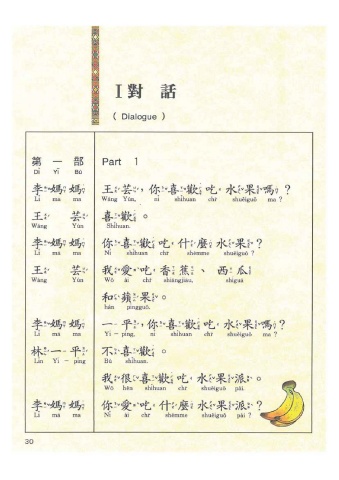 I 對 話
( Dialogue )
第 一 部 Part 1
Dì Yī Bù
李媽媽 王芸，你喜歡吃水果嗎？
Lǐ mā ma Wáng Yún, nǐ shǐhuan chr̄ shuěiguǒ ma ?
王 芸 喜歡。
Wáng Yún Shǐhuan.
李媽媽 你喜歡吃什麼水果？
Lǐ mā ma Nǐ shǐhuan chr̄ shémme shuěiguǒ ?
王 芸 我愛吃香蕉、西瓜
Wáng Yún Wǒ ài chr̄ shiāngjiāu, shīguā
和蘋果。
hàn píngguǒ.
李媽媽 一平，你喜歡吃水果嗎？
Lǐ mā ma Yī-píng, nǐ shǐhuan chr̄ shuěiguǒ ma ?
林一平 不喜歡。
Lín Yī-píng Bù shǐhuan.
我很喜歡吃水果派。
Wǒ hěn shǐhuan chr̄ shuěiguǒ pài.
李媽媽 你愛吃什麼水果派？
Lǐ mā ma Nǐ ài chr̄ shémme shuěiguǒ pài ?
30